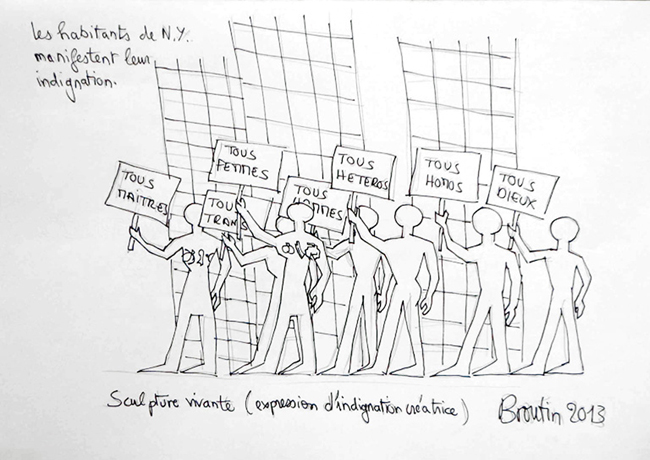 les habitants de N.Y.
manifestent leur
indignation.
TOUS
MAITRES
TOUS
TRANS
TOUS
FEMMES
TOUS
HOMMES
TOUS
HETEROS
TOUS
HOMOS
TOUS
DIEUX
Sculpture vivante (expression d'indignation créatrice)
Broutin 2013